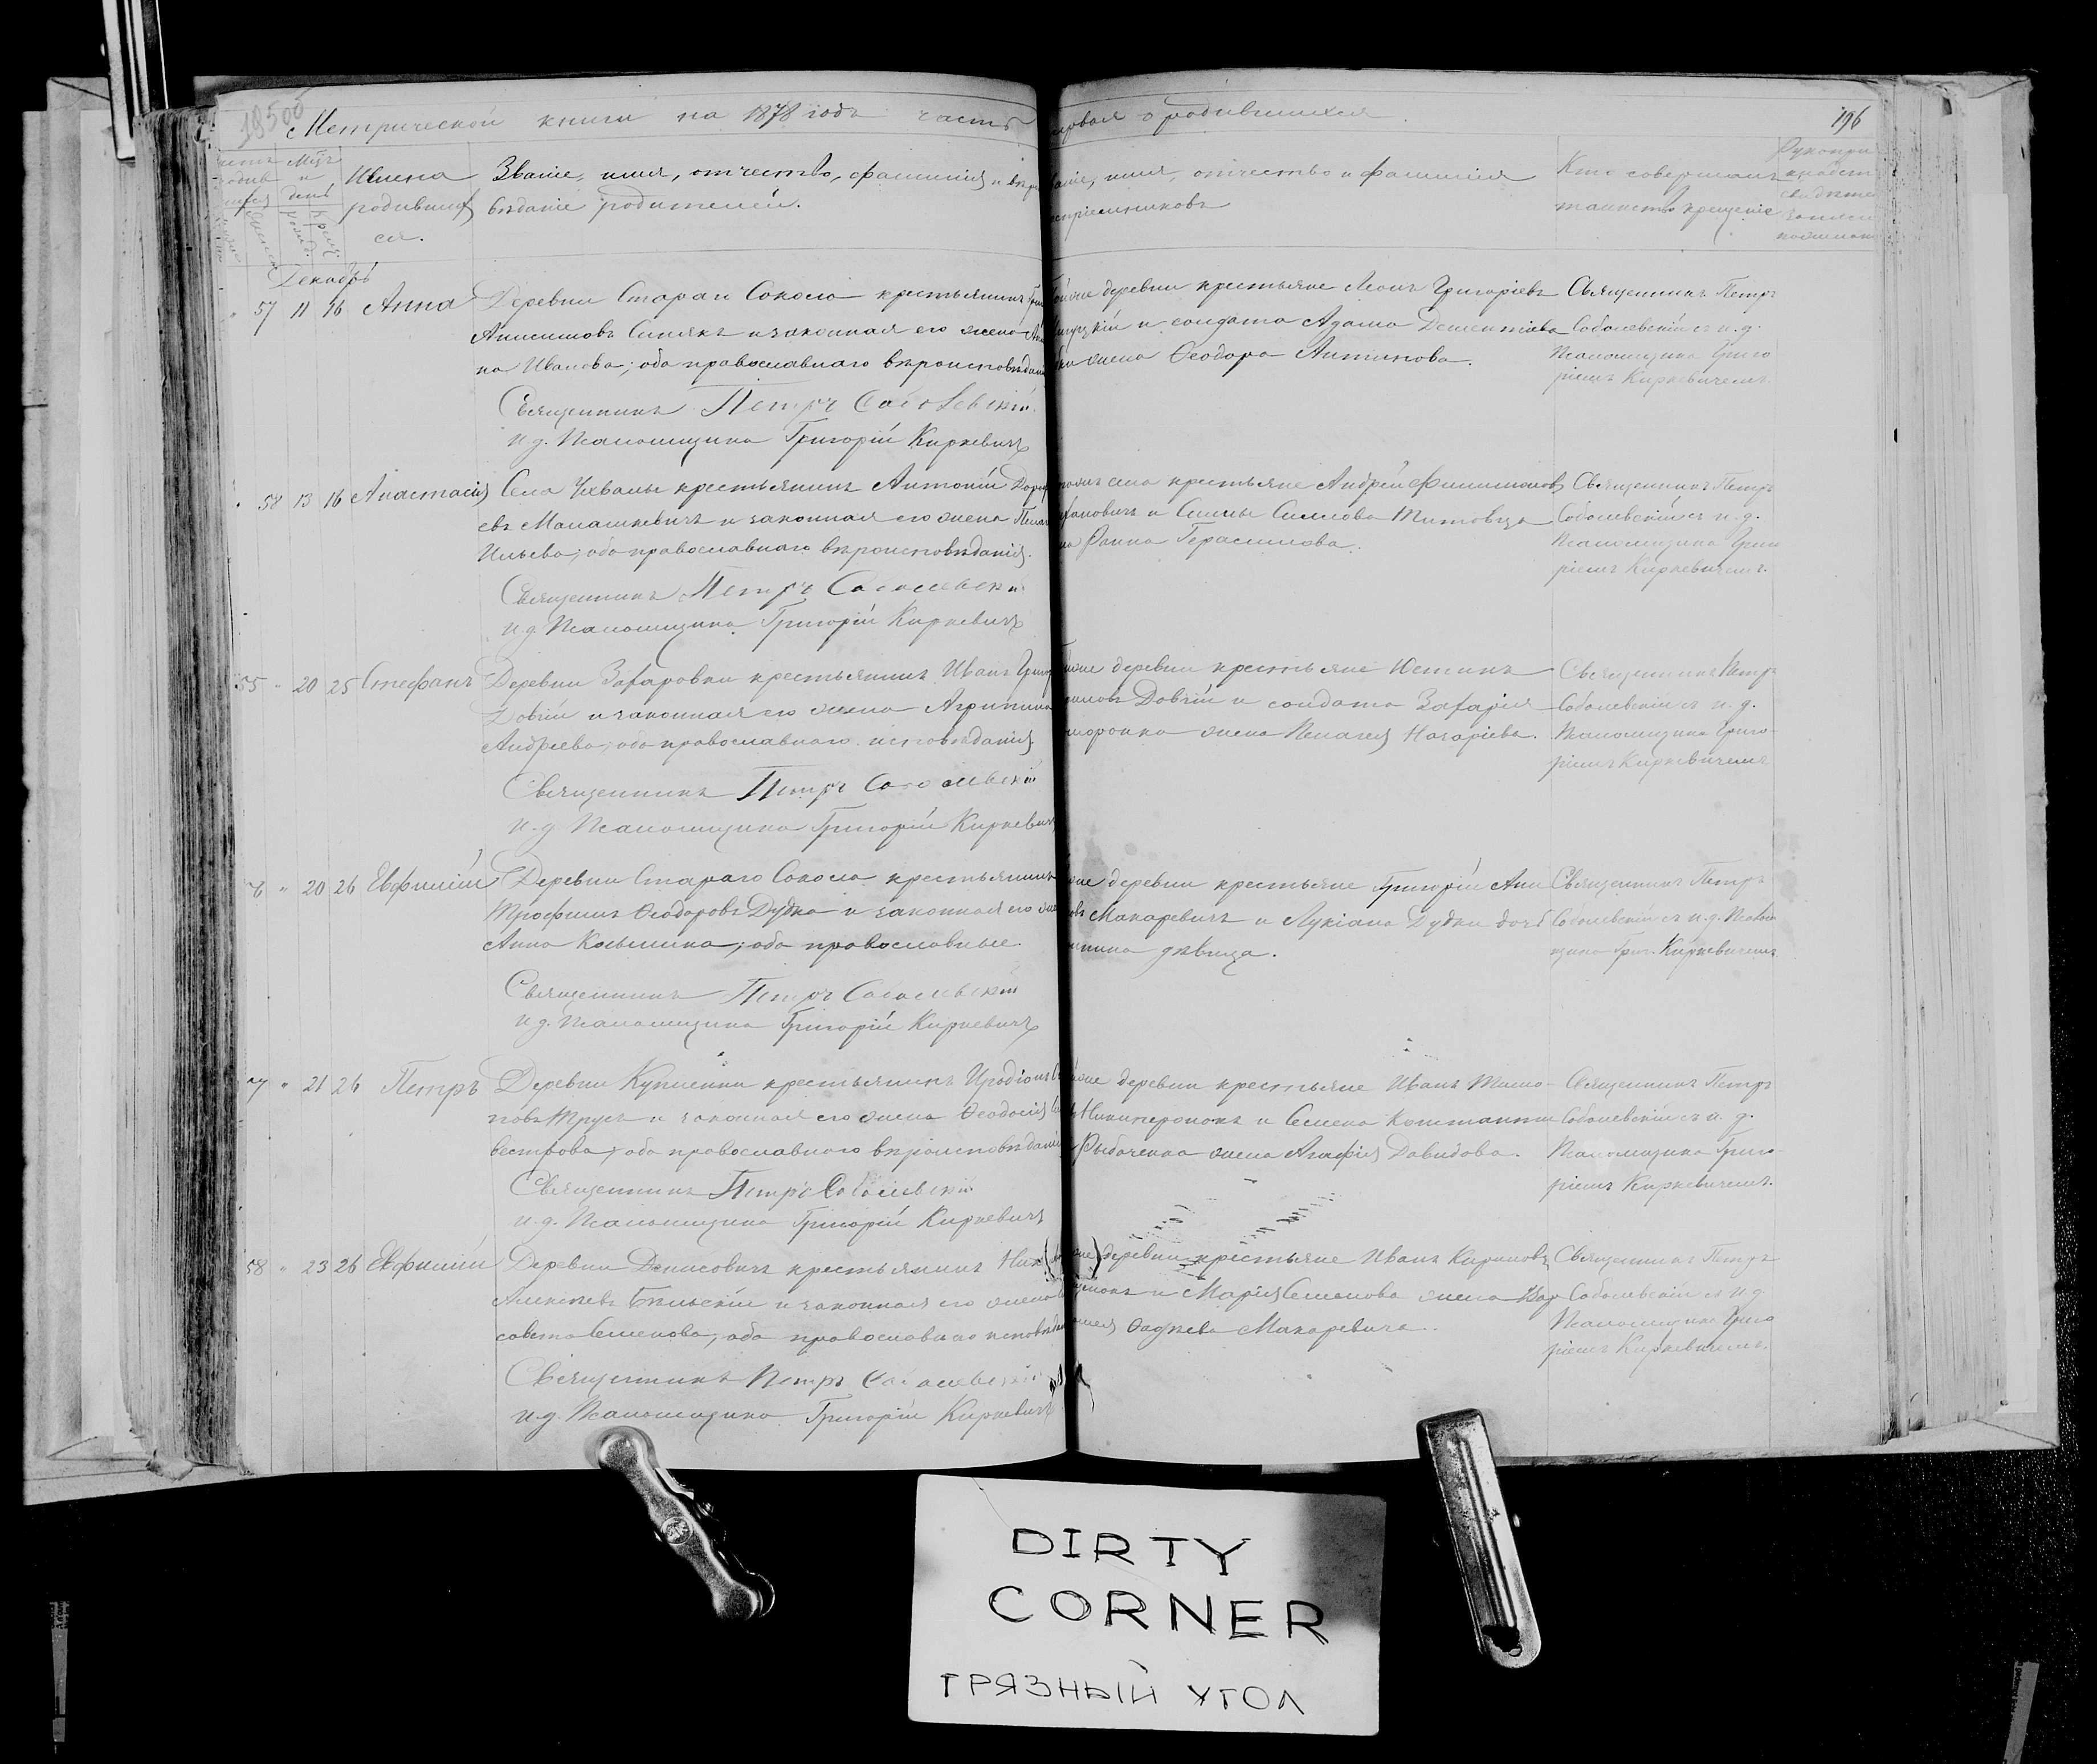 18500
Метрической книги на 1878 годъ часть первая о родившихся
196
Имена родившихся.
Званіе, имя, отчество, фамилия и вѣроисповѣданіе родителей.
Званіе, имя, отчество и фамилия
воспріемниковъ
Кто совершалъ
таинство крещенія
Декабрь
57 11 16 Анна
Деревни Стараго Сокола крестьянинъ
Анисимовъ Синякъ и законная его жена
на Иванова; оба православнаго вѣроисповѣданія
Священникъ Петръ Соболевскій
и.д. Псаломщика Григорій Киркевичъ
деревни крестьяне Леонъ Григоріевъ
и солдата Адама Дементіева
жена Ѳеодора Антипова.
Священникъ Петръ
Соболевскій съ и.д.
Псаломщика Григо
ріемъ Киркевичемъ.
58 13 16 Анастасія
Села Ухвалы крестьянинъ Антоній
евъ Малашкевичъ и законная его жена
Ильева; оба православнаго вѣроисповѣданія.
Священникъ Петръ Соболевскій
и.д. Псаломщика Григорій Киркевичъ
села крестьяне Андрей Филимоновъ
и Симы Силкова Титовца
Фанна Герасимова.
Священникъ Петръ
Соболевскій съ и.д.
Псаломщика Григо
ріемъ Киркевичемъ.
55 " 20 25 Стефанъ
Деревни Захаровки крестьянинъ Иванъ
Довгій и законная его жена Агрипина
Андреева; оба православнаго исповѣданія.
Священникъ Петръ Соболевскій
и.д. Псаломщика Григорій Киркевичъ
деревни крестьяне Юстинъ
Довгій и солдата Захарія
жена Пелагея Назаріева.
Священникъ Петръ
Соболевскій съ и.д.
Псаломщика Григо-
ріемъ Киркевичемъ
" 20 26 Евфимій
Деревни Стараго Сокола крестьянинъ
Трофимъ Ѳеодоровъ Дудка и законная его жена
Анна Косьмина; оба православные.
Священникъ Петръ Соболевскій
и.д. Псаломщика Григорій Киркевичъ
деревни крестьяне Григорій
Макаревичъ и Лукіана Дудки дочь
дѣвица.
Священникъ Петръ
Соболевскій съ и.д. Псалом
щика Григ. Киркевичемъ
" 21 26 Петръ
Деревни Купленки крестьянинъ Иродіонъ
повъ Трусъ и законная его жена Ѳеодосія
вестрова; оба православнаго вѣроисповѣданія
Священникъ Петръ Соболевскій
и.д. Псаломщика Григорій Киркевичъ
деревни крестьяне Иванъ
Никиперонокъ и Семена Константи
Рыбаченка жена Агафія Давидова.
Священникъ Петръ
Соболевскій съ и.д.
Псаломщика Григо-
ріемъ Киркевичемъ.
58 " 23 26 Евфимій
Деревни Денисовичъ крестьянинъ
Алексѣевъ Бѣльскій и законная его жена
савета Семенова; оба православнаго
Священникъ Петръ Соболевскій
и.д. Псаломщика Григорій Киркевичъ
деревни крестьяне Иванъ Карповъ
и Марія Семенова жена
Ѳадѣева Макаревича.
Священникъ Петръ
Соболевскій съ и.д.
Псаломщика Григо
ріемъ Киркевичемъ.
DIRTY
CORNER
ГРЯЗНЫЙ УГОЛ